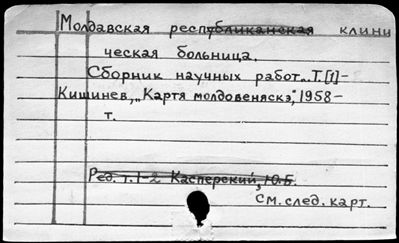 Молдавская республиканская клини
ческая больница.
Сборник научных работ... Т.[1]-
Кишинев, „Картя молдовеняскэ", 1958-
т.
Ред. т.1-2 Касперский, Ю.Б.
См. след. карт.